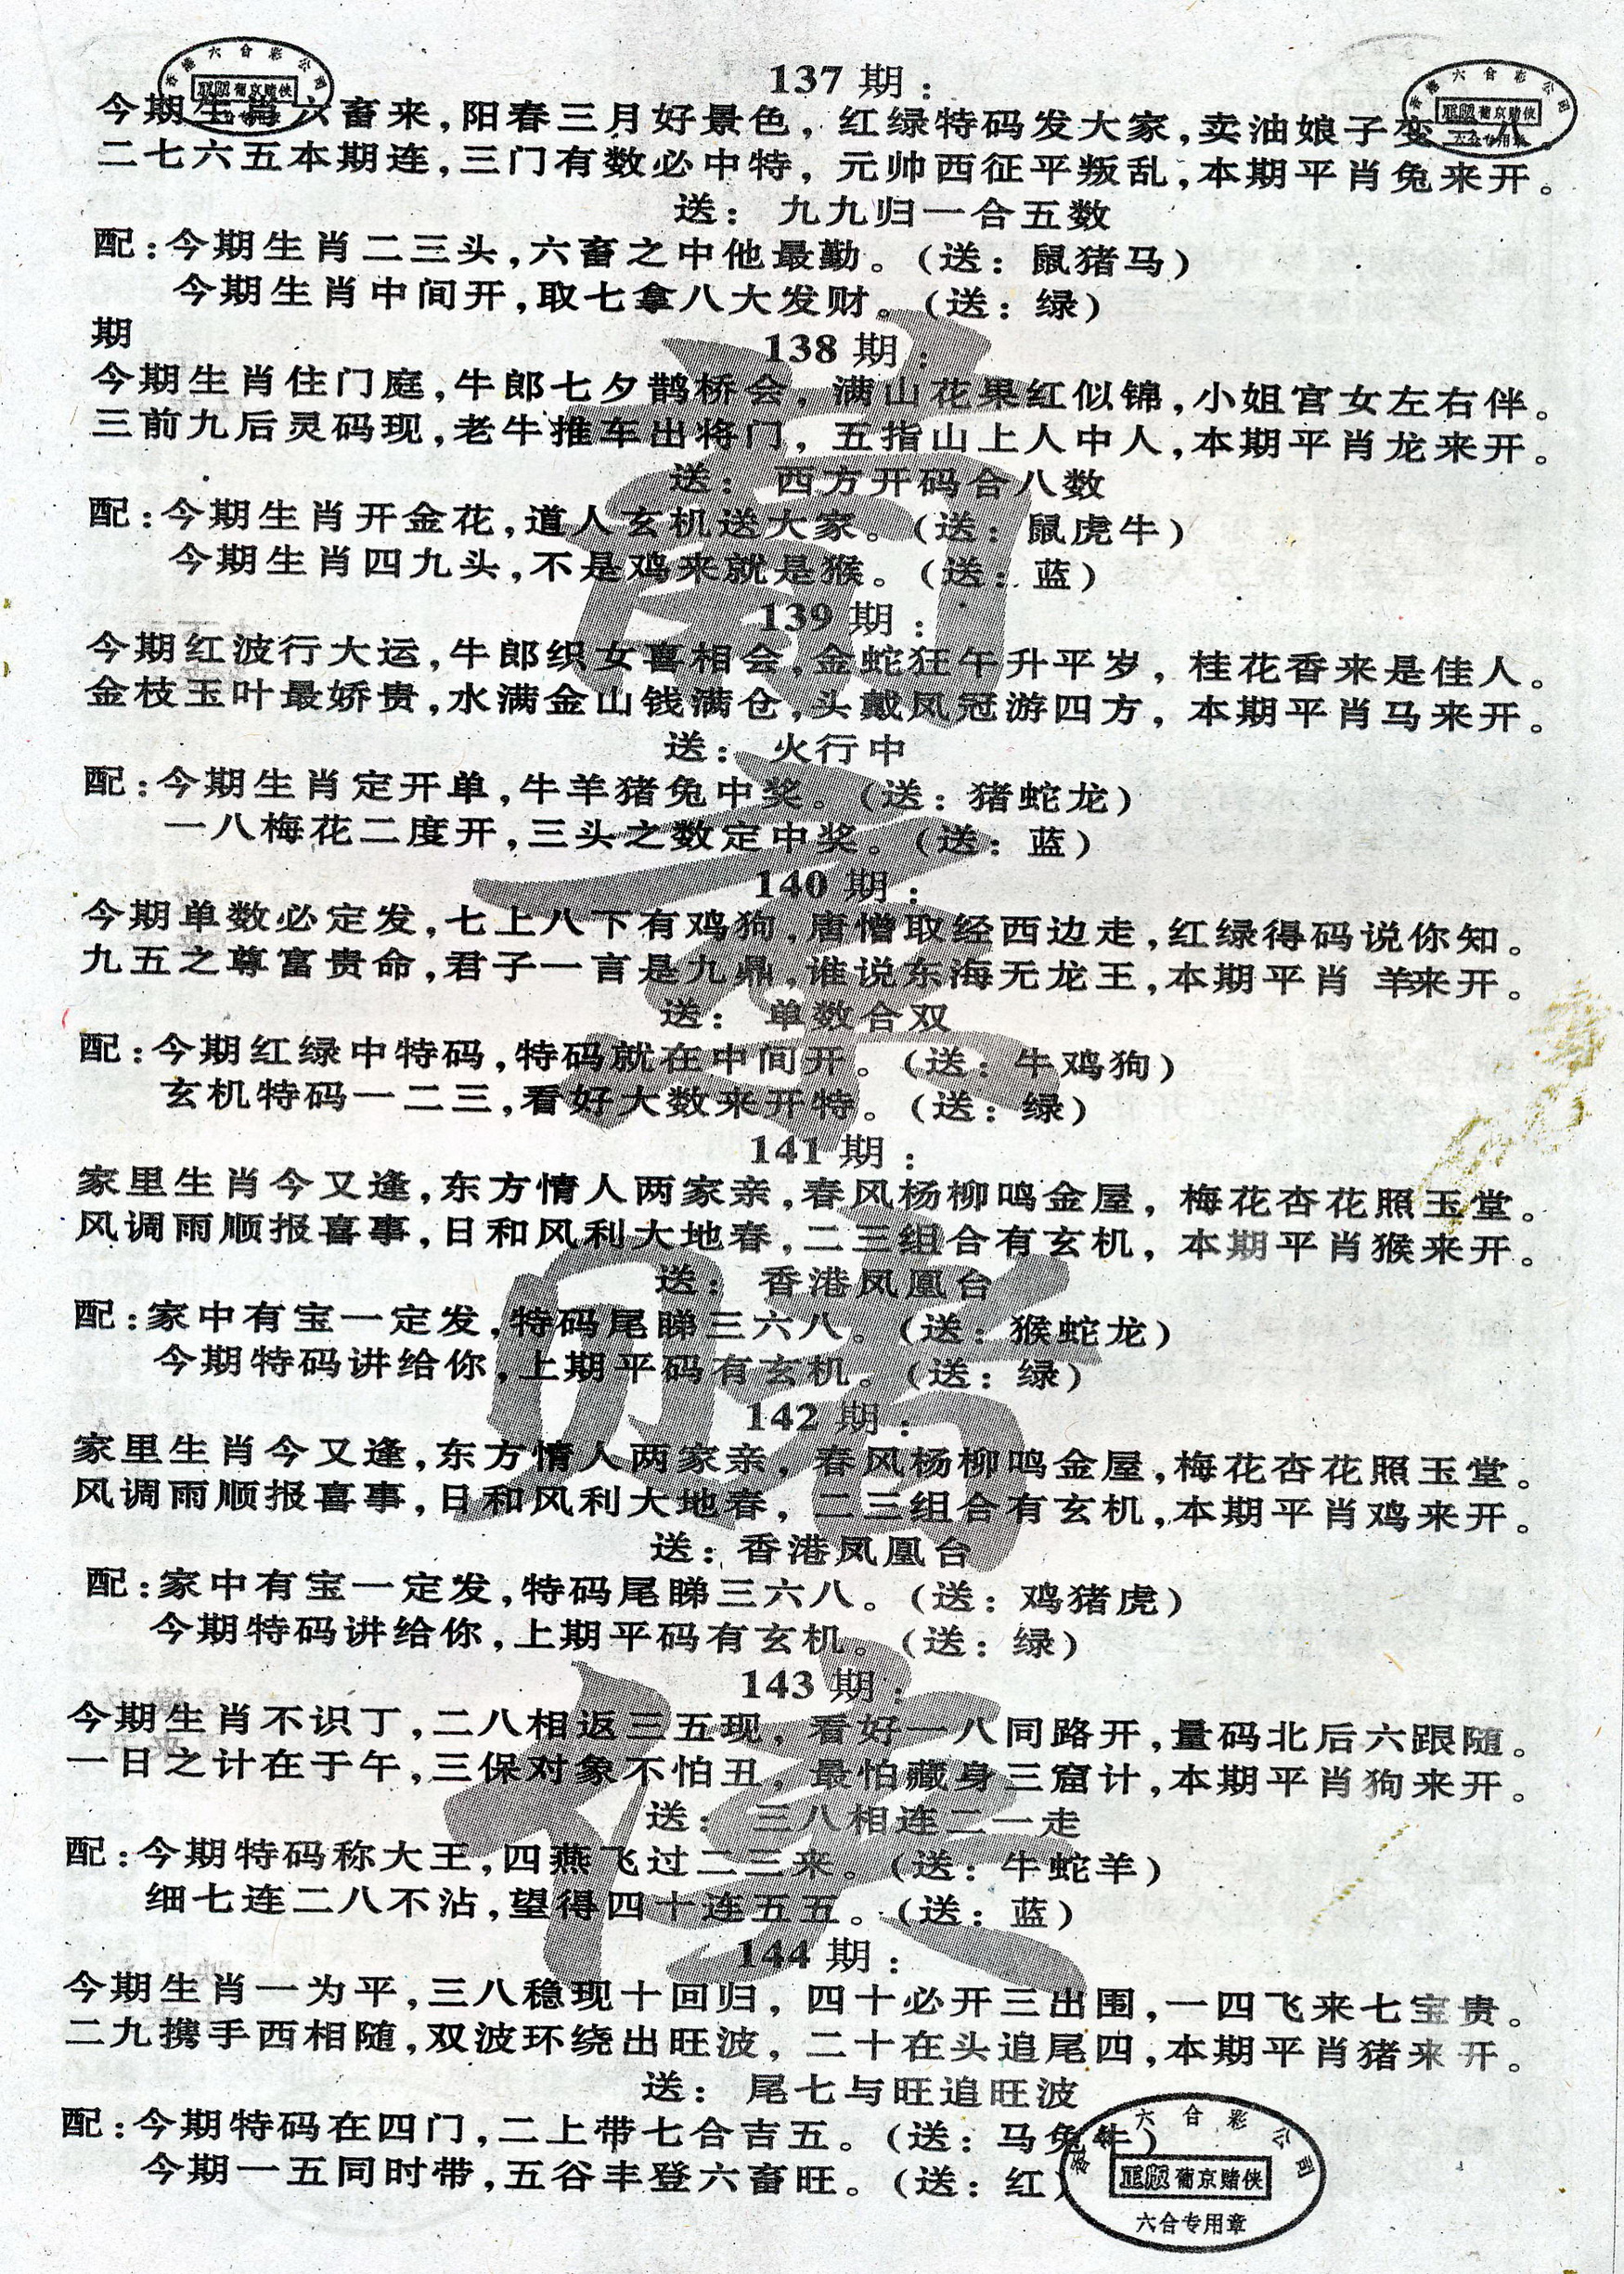 香港六合彩公司
正版 葡京赌侠
六合专用章
香港六合彩公司
正版 葡京赌侠
六合专用章
137 期：
今期生肖六畜来，阳春三月好景色，红绿特码发大家，卖油娘子变
二七六五本期连，三门有数必中特，元帅西征平叛乱，本期平肖兔来开。
送： 九九归一合五数
配：今期生肖二三头，六畜之中他最勤。（送：鼠猪马）
今期生肖中间开，取七拿八大发财。（送：绿）
期
138 期：
今期生肖住门庭，牛郎七夕鹊桥会，满山花果红似锦，小姐宫女左右伴。
三前九后灵码现，老牛推车出将门，五指山上人中人，本期平肖龙来开。
送： 西方开码合八数
配：今期生肖开金花，道人玄机送大家。（送：鼠虎牛）
今期生肖四九头，不是鸡来就是猴。（送：蓝）
139 期：
今期红波行大运，牛郎织女喜相会，金蛇狂午升平岁，桂花香来是佳人。
金枝玉叶最娇贵，水满金山钱满仓，头戴凤冠游四方，本期平肖马来开。
送： 火行中
配：今期生肖定开单，牛羊猪兔中奖。（送：猪蛇龙）
一八梅花二度开，三头之数定中奖。（送：蓝）
140 期：
今期单数必定发，七上八下有鸡狗，唐憎取经西边走，红绿得码说你知。
九五之尊富贵命，君子一言是九鼎，谁说东海无龙王，本期平肖 羊来开。
送： 单数合双
配：今期红绿中特码，特码就在中间开。（送：牛鸡狗）
玄机特码一二三，看好大数来开特。（送：绿）
141 期：
家里生肖今又逢，东方情人两家亲，春风杨柳鸣金屋，梅花杏花照玉堂。
风调雨顺报喜事，日和风利大地春，二三组合有玄机，本期平肖猴来开。
送： 香港凤凰台
配：家中有宝一定发，特码尾睇三六八。（送：猴蛇龙）
今期特码讲给你，上期平码有玄机。（送：绿）
142 期：
家里生肖今又逢，东方情人两家亲，春风杨柳鸣金屋，梅花杏花照玉堂。
风调雨顺报喜事，日和风利大地春，二三组合有玄机，本期平肖鸡来开。
送：香港凤凰台
配：家中有宝一定发，特码尾睇三六八。（送：鸡猪虎）
今期特码讲给你，上期平码有玄机。（送：绿）
143 期：
今期生肖不识丁，二八相返三五现，看好一八同路开，量码北后六跟随。
一日之计在于午，三保对象不怕丑，最怕藏身三窟计，本期平肖狗来开。
送： 三八相连二一走
配：今期特码称大王，四燕飞过二三来。（送：牛蛇羊）
细七连二八不沾，望得四十连五五。（送：蓝）
144 期：
今期生肖一为平，三八稳现十回归，四十必开三出围，一四飞来七宝贵。
二九携手西相随，双波环绕出旺波，二十在头追尾四，本期平肖猪来开。
送： 尾七与旺追旺波
配：今期特码在四门，二上带七合吉五。（送：马兔牛）
今期一五同时带，五谷丰登六畜旺。（送：红）
香港六合彩公司
正版 葡京赌侠
六合专用章